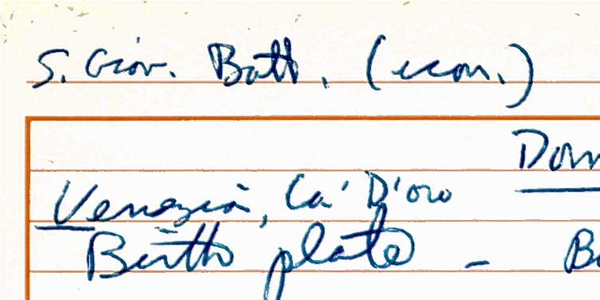 S. Giov. Batt. (icon.)
Dom
Venezia, Ca' D'oro
Birth plate - B